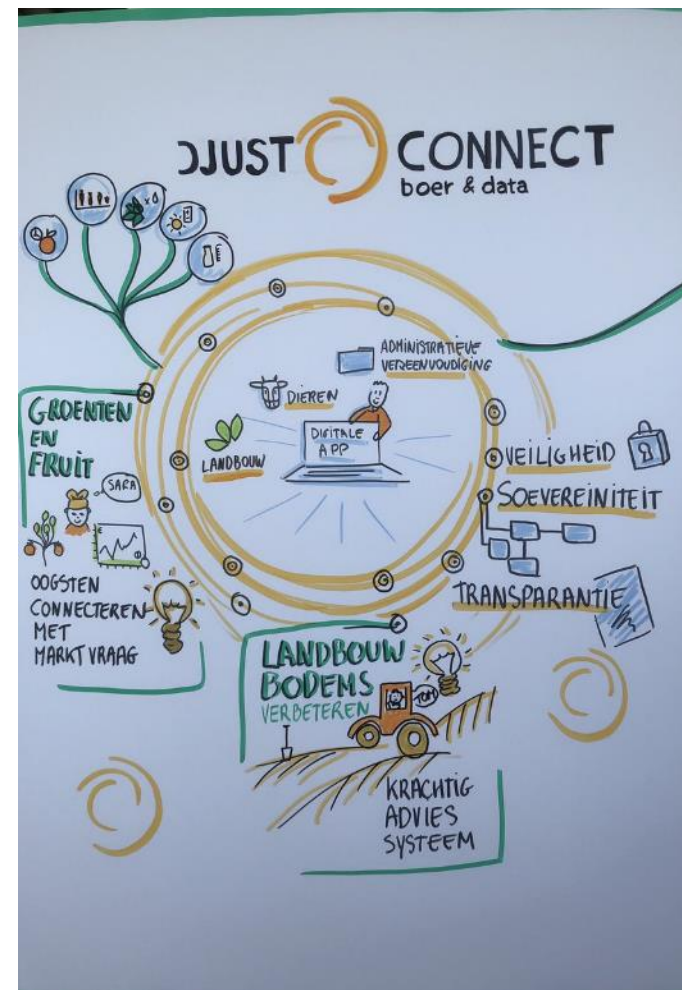 DJUST CONNECT
boer & data
ADMINISTRATIEVE
VEREENVOUDIGING
DIEREN
DIGITALE
APP
LANDBOUW
GROENTEN
EN
FRUIT
SARA
OOGSTEN
CONNECTEREN
MET
MARKT VRAAG
VEILIGHEID
SOEVEREINITEIT
TRANSPARANTIE
LANDBOUW
BODEMS
VERBETEREN
TOM
KRACHTIG
ADVIES
SYSTEEM